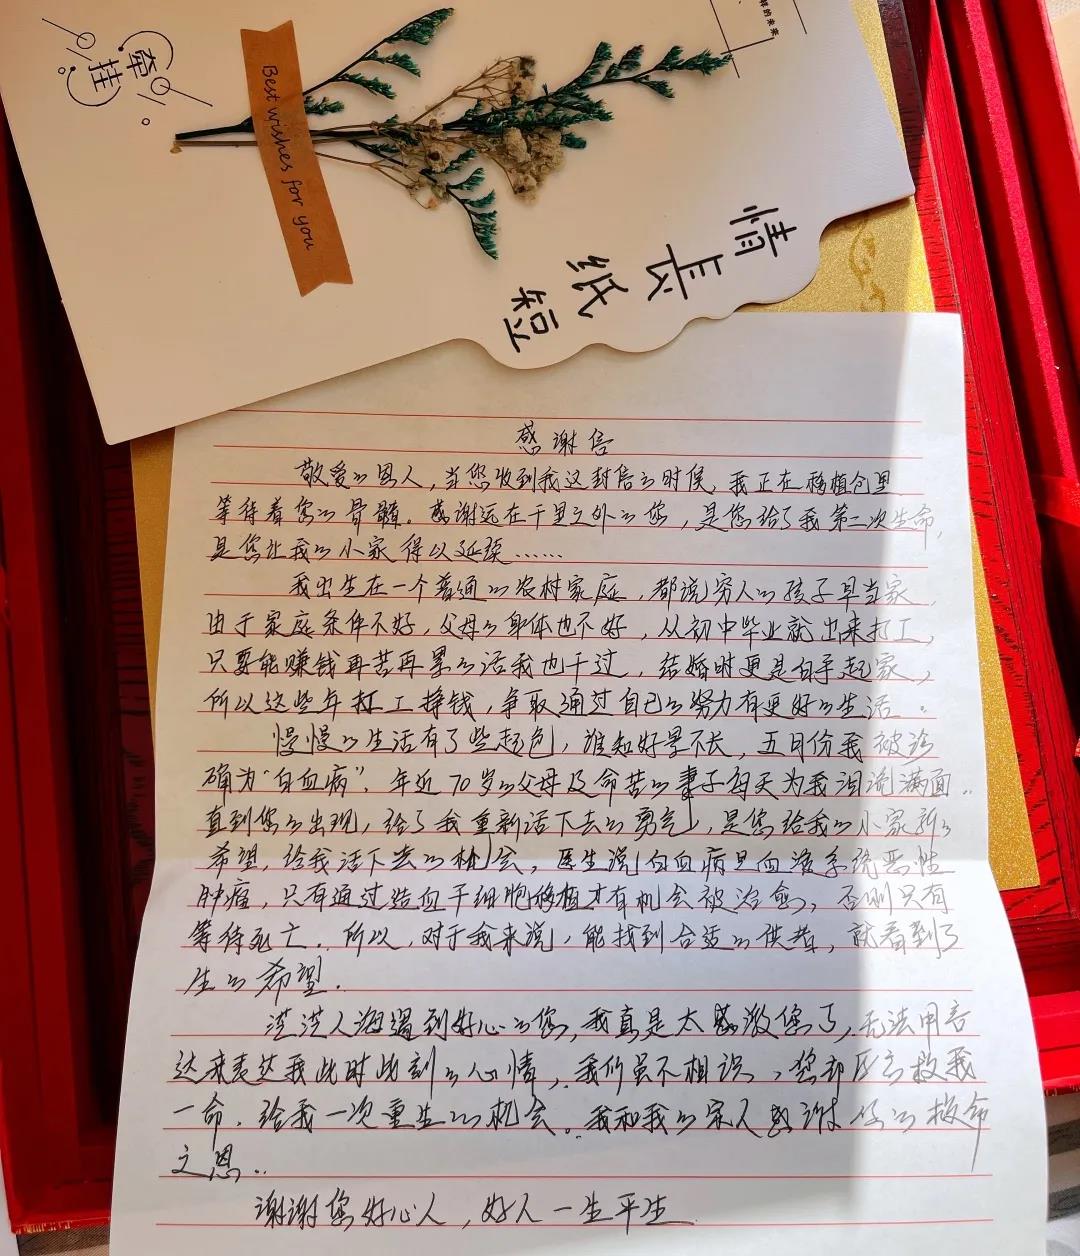 牵挂
Best wishes for you
样的未来
情长纸短
感谢信
敬爱的恩人，当您收到我这封信的时候，我正在移植仓里
等待着您的骨髓。感谢远在千里之外的您，是您给了我第二次生命，
是您让我的小家得以延续……
我出生在一个普通的农村家庭，都说穷人的孩子早当家，
由于家庭条件不好，父母的身体也不好，从初中毕业就出来打工，
只要能赚钱再苦再累的活我也干过，结婚时更是白手起家，
所以这些年打工挣钱，争取通过自己的努力有更好的生活。
慢慢的生活有了些起色，谁知好景不长，五月份我被诊
确为“白血病”，年近70岁的父母及命苦的妻子每天为我泪流满面..
直到您的出现，给了我重新活下去的勇气，是您给我的小家新的
希望，给我活下去的机会。医生说白血病是血液系统恶性
肿瘤，只有通过造血干细胞移植才有机会被治愈，否则只有
等待死亡．所以，对于我来说，能找到合适的供者，就看到了
生的希望．
茫茫人海遇到好心的您，我真是太感激您了，无法用言
达来表达我此时此刻的心情，我们虽不相识，您却 救我
一命．给我一次重生的机会。我和我的家人感谢 的救命
之恩..
谢谢您好心人，好人一生平生